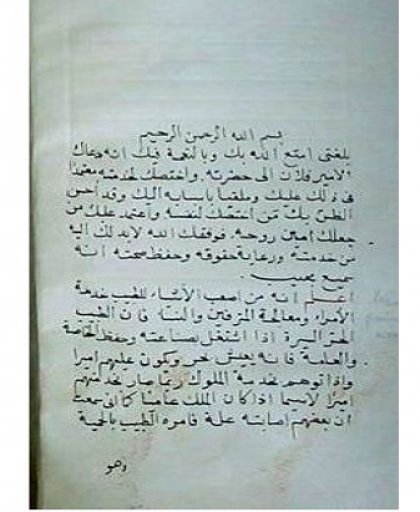 بسم الله الرحمن الرحيم
بلغني امتع الله بك وبالنعمة فيك انه دعاك
الامير فلان الى حضرته واختصك لخدمته معتمدا
في ذلك عليك وملقيا باسبابه اليك وقد احسن
الظن بك من امتحنك لنفسه واعتمد عليك من
جعلك امين روحه. فوفقك الله لما بدلك اليه
من خدمته ورعاية حقوقه وحفظ صحته انه
سميع مجيب.
اعلم انه من اصعب الاشياء للطبيب خدمة
الامراء ومعالجة المترفين والنساء فان الطبيب
الحر السيرة اذا اشتغل بصناعته وحفظ الخاصة
والعامة فانه يعيش بخير ويكون عليهم اميرا
واذا توهم بخدمة الملوك ربما صار بخدمتهم
اميرا لا سيما اذا كان الملك عاميا كما اني سمعت
ان بعضهم اصابته علة فامره الطبيب بالحمية
وهو